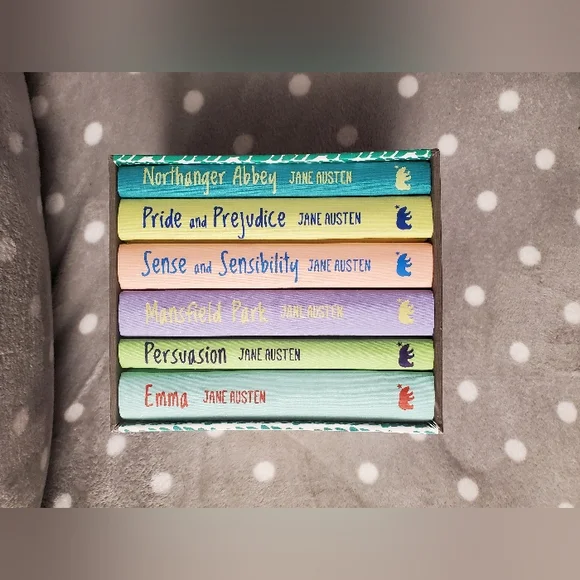 Northanger Abbey JANE AUSTEN
Pride and Prejudice JANE AUSTEN
Sense and Sensibility JANE AUSTEN
Mansfield Park JANE AUSTEN
Persuasion JANE AUSTEN
Emma JANE AUSTEN